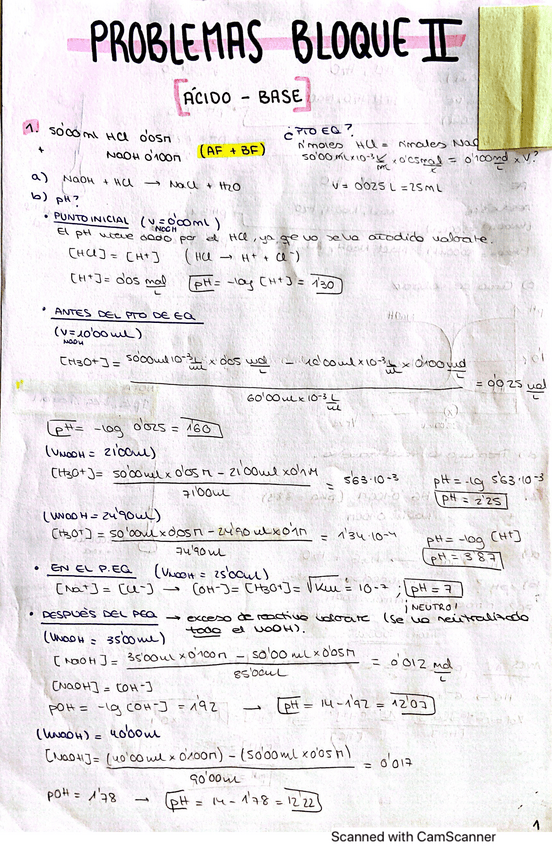 PROBLEMAS BLOQUE II
[ÁCIDO - BASE]
1. 50'00 ml HCl 0'05M
+ NaOH 0'100M (AF + BF)
¿PTO EQ?
nºmoles HCl = nºmoles
50'00 ml×10⁻³ L/ml × 0'05 mol/L = 0'100 mol/L × V?
V = 0'025 L = 25ml
a) NaOH + HCl → NaCl + H2O
b) pH?
• PUNTO INICIAL (VNaOH = 0'00ml)
El pH viene dado por el HCl, ya que no se ha añadido valorante.
[HCl] = [H+] (HCl → H+ + Cl-)
[H+] = 0'05 mol/L pH = -log [H+] = 1'30
• ANTES DEL PTO DE EQ
(VNaOH = 10'00ml)
[H3O+] = 50'00ml·10⁻³ L/ml × 0'05 mol/L - 10'00ml×10⁻³ L/ml × 0'100 mol/L / 60'00ml×10⁻³ L/ml = 0'025 mol/L
pH = -log 0'025 = 1'60
(VNaOH = 21'00ml)
[H3O+] = 50'00ml×0'05M - 21'00ml×0'1M / 71'00ml = 5'63·10⁻³
pH = -log 5'63·10⁻³
pH = 2'25
(VNaOH = 24'90ml)
[H3O+] = 50'00ml×0'05M - 24'90ml×0'1M / 74'90ml = 1'34·10⁻⁴
pH = -log [H+]
pH = 3'87
• EN EL P.EQ (VNaOH = 25'00ml)
[Na+] = [Cl-] → [OH-] = [H3O+] = √Kw = 10⁻⁷ ; pH = 7
¡NEUTRO!
• DESPUÉS DEL PEQ → exceso de reactivo valorante (Se ha neutralizado
todo el NaOH).
(VNaOH = 35'00ml)
[NaOH] = 35'00ml×0'100M - 50'00ml×0'05M / 85'00ml = 0'012 mol/L
[NaOH] = [OH-]
pOH = -log [OH-] = 1'92 → pH = 14 - 1'92 = 12'07
(VNaOH) = 40'00ml
[NaOH] = (40'00ml×0'100M) - (50'00ml×0'05M) / 90'00ml = 0'017
pOH = 1'78 → pH = 14 - 1'78 = 12'22
1
Scanned with CamScanner